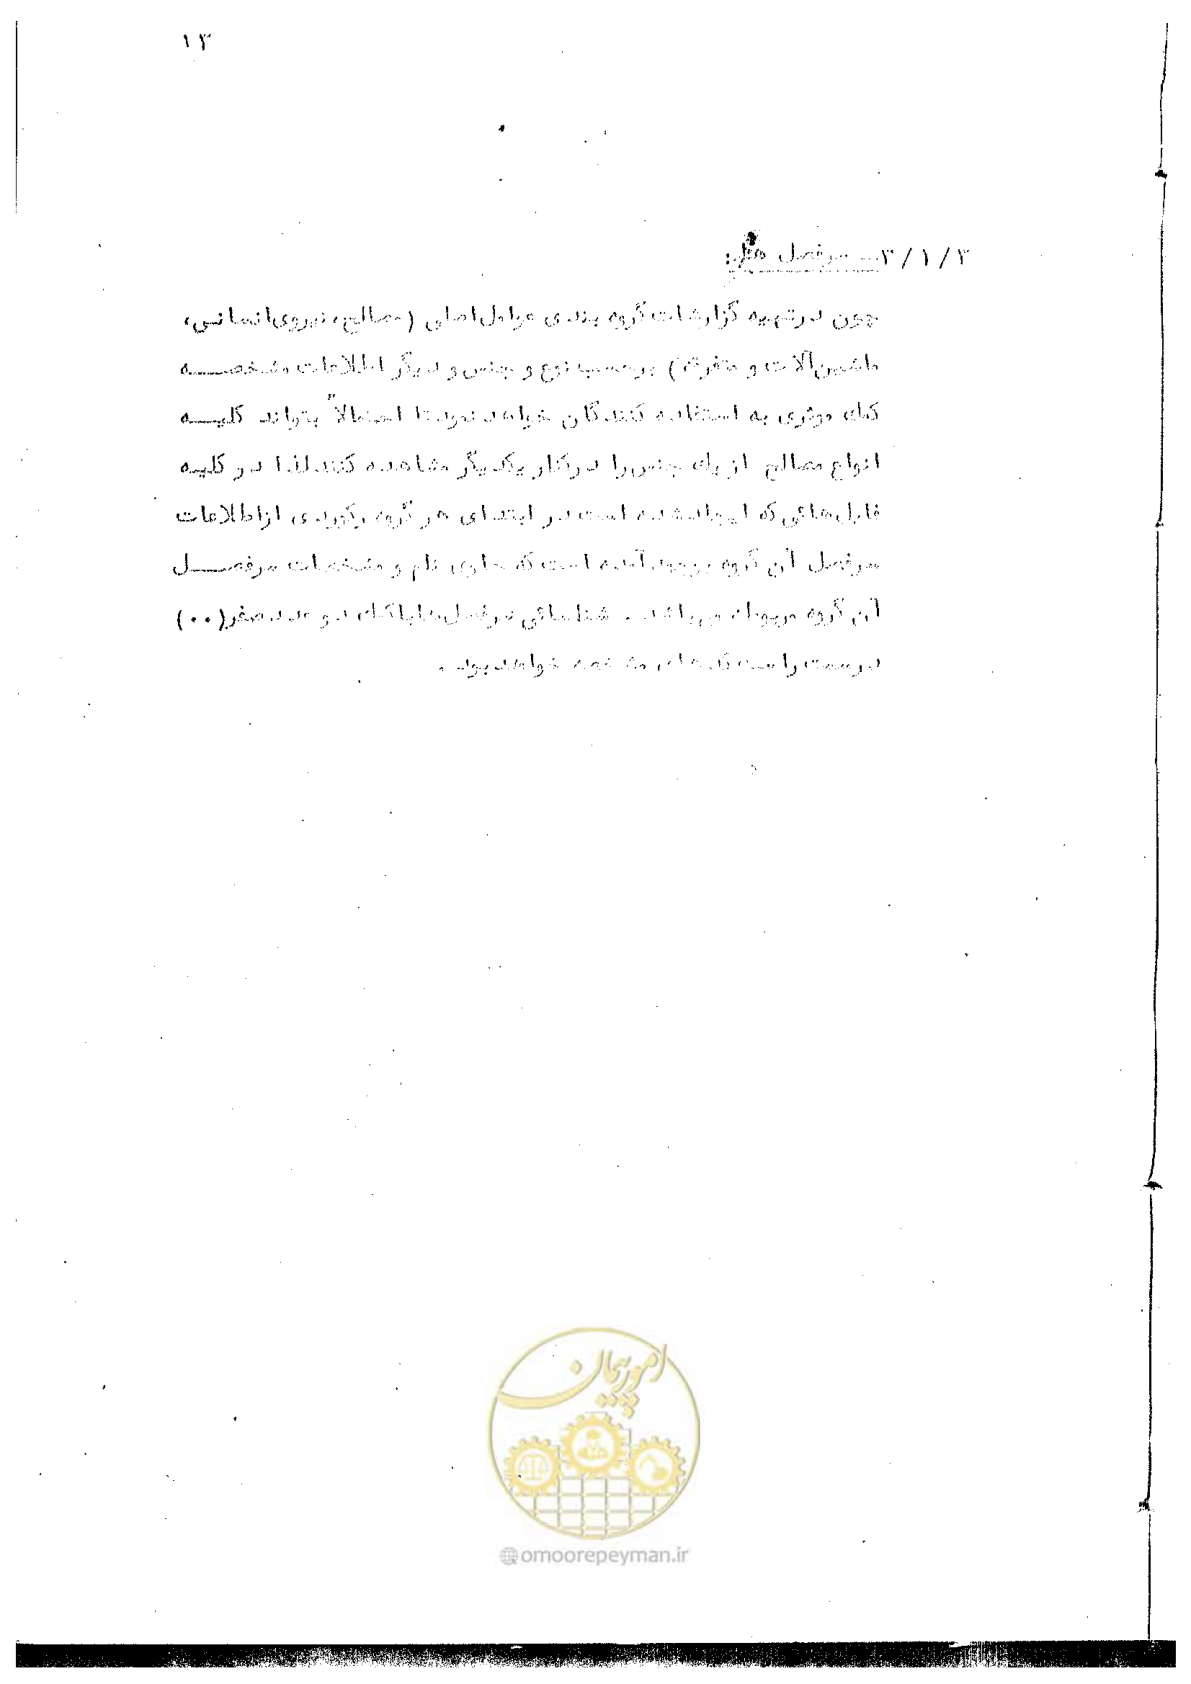 ۱۳
۳/۱/۳ــ سرفصل ها:
چون درتهیه گزارشات گروه بندی عوامل اصلی (مصالح، نیروی انسانی،
ماشین آلات و متفرقه) برحسب نوع و جنس و دیگر اطلاعات مشخصــه
کمك موثری به استفاده کنندگان خواهد نمود تا احتمالاً بتواند کلیــه
انواع مصالح از یك جنس را درکنار یکدیگر مشاهده کنند لذا در کلیه
فایل هائی که ایجاد شده است در ابتدای هر گروه رکوردی از اطلاعات
سرفصل آن گروه بوجود آمده است که حاوی نام و مشخصات سرفصــل
آن گروه مربوطه می باشد . شناسائی سرفصل ها با کمك دو عدد صفر(۰۰)
درسمت راست کدهای مشخصه خواهد بود .
امور پیمان
@omoorepeyman.ir